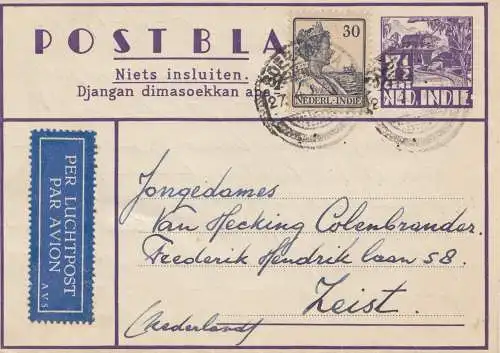 POSTBLA
Niets insluiten.
Djangan dimasoekkan ap
30
NEDERL.-INDIË
7½
CENT
NED. INDIE
27.
PER LUCHTPOST
PAR AVION
AVS
Jongedames
Van Hecking Colenbrander.
Frederik Hendrik laan 58.
Zeist.
(Nederland)